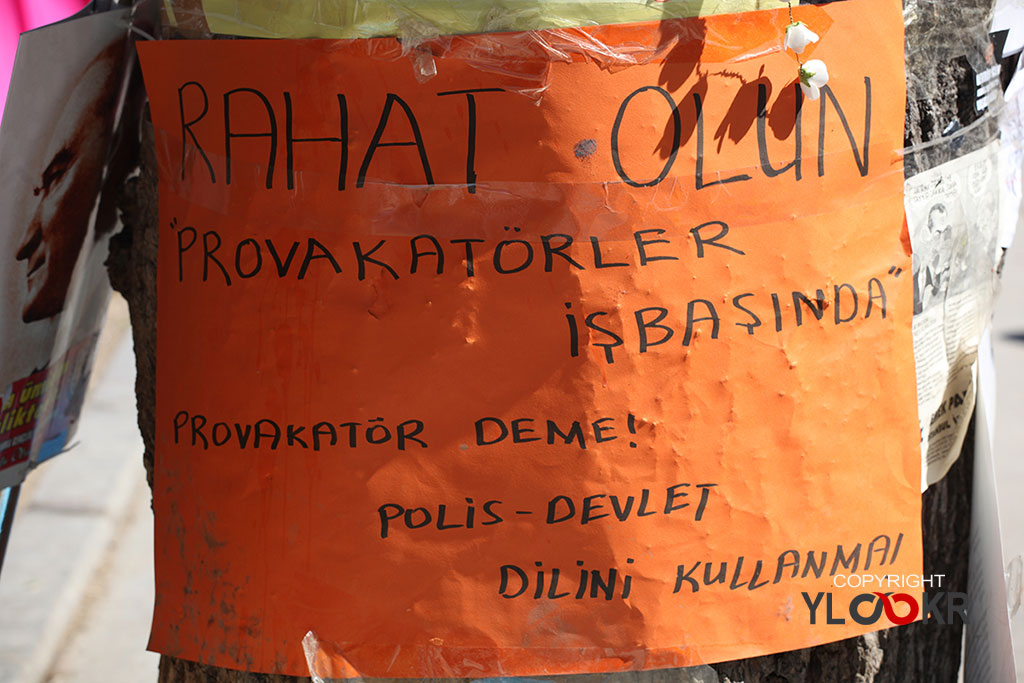 RAHAT OLUN
"PROVAKATÖRLER
İŞBAŞINDA"
PROVAKATÖR DEME!
POLİS-DEVLET
DİLİNİ KULLANMA!
COPYRIGHT
YLOOKR